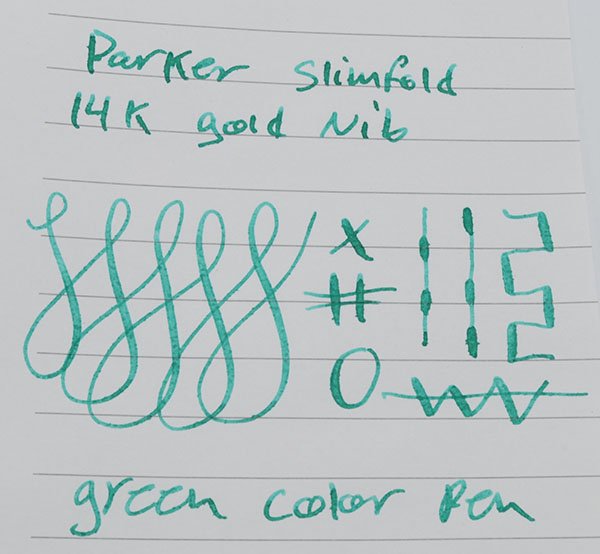 Parker Slimfold
14K gold Nib
green color Pen